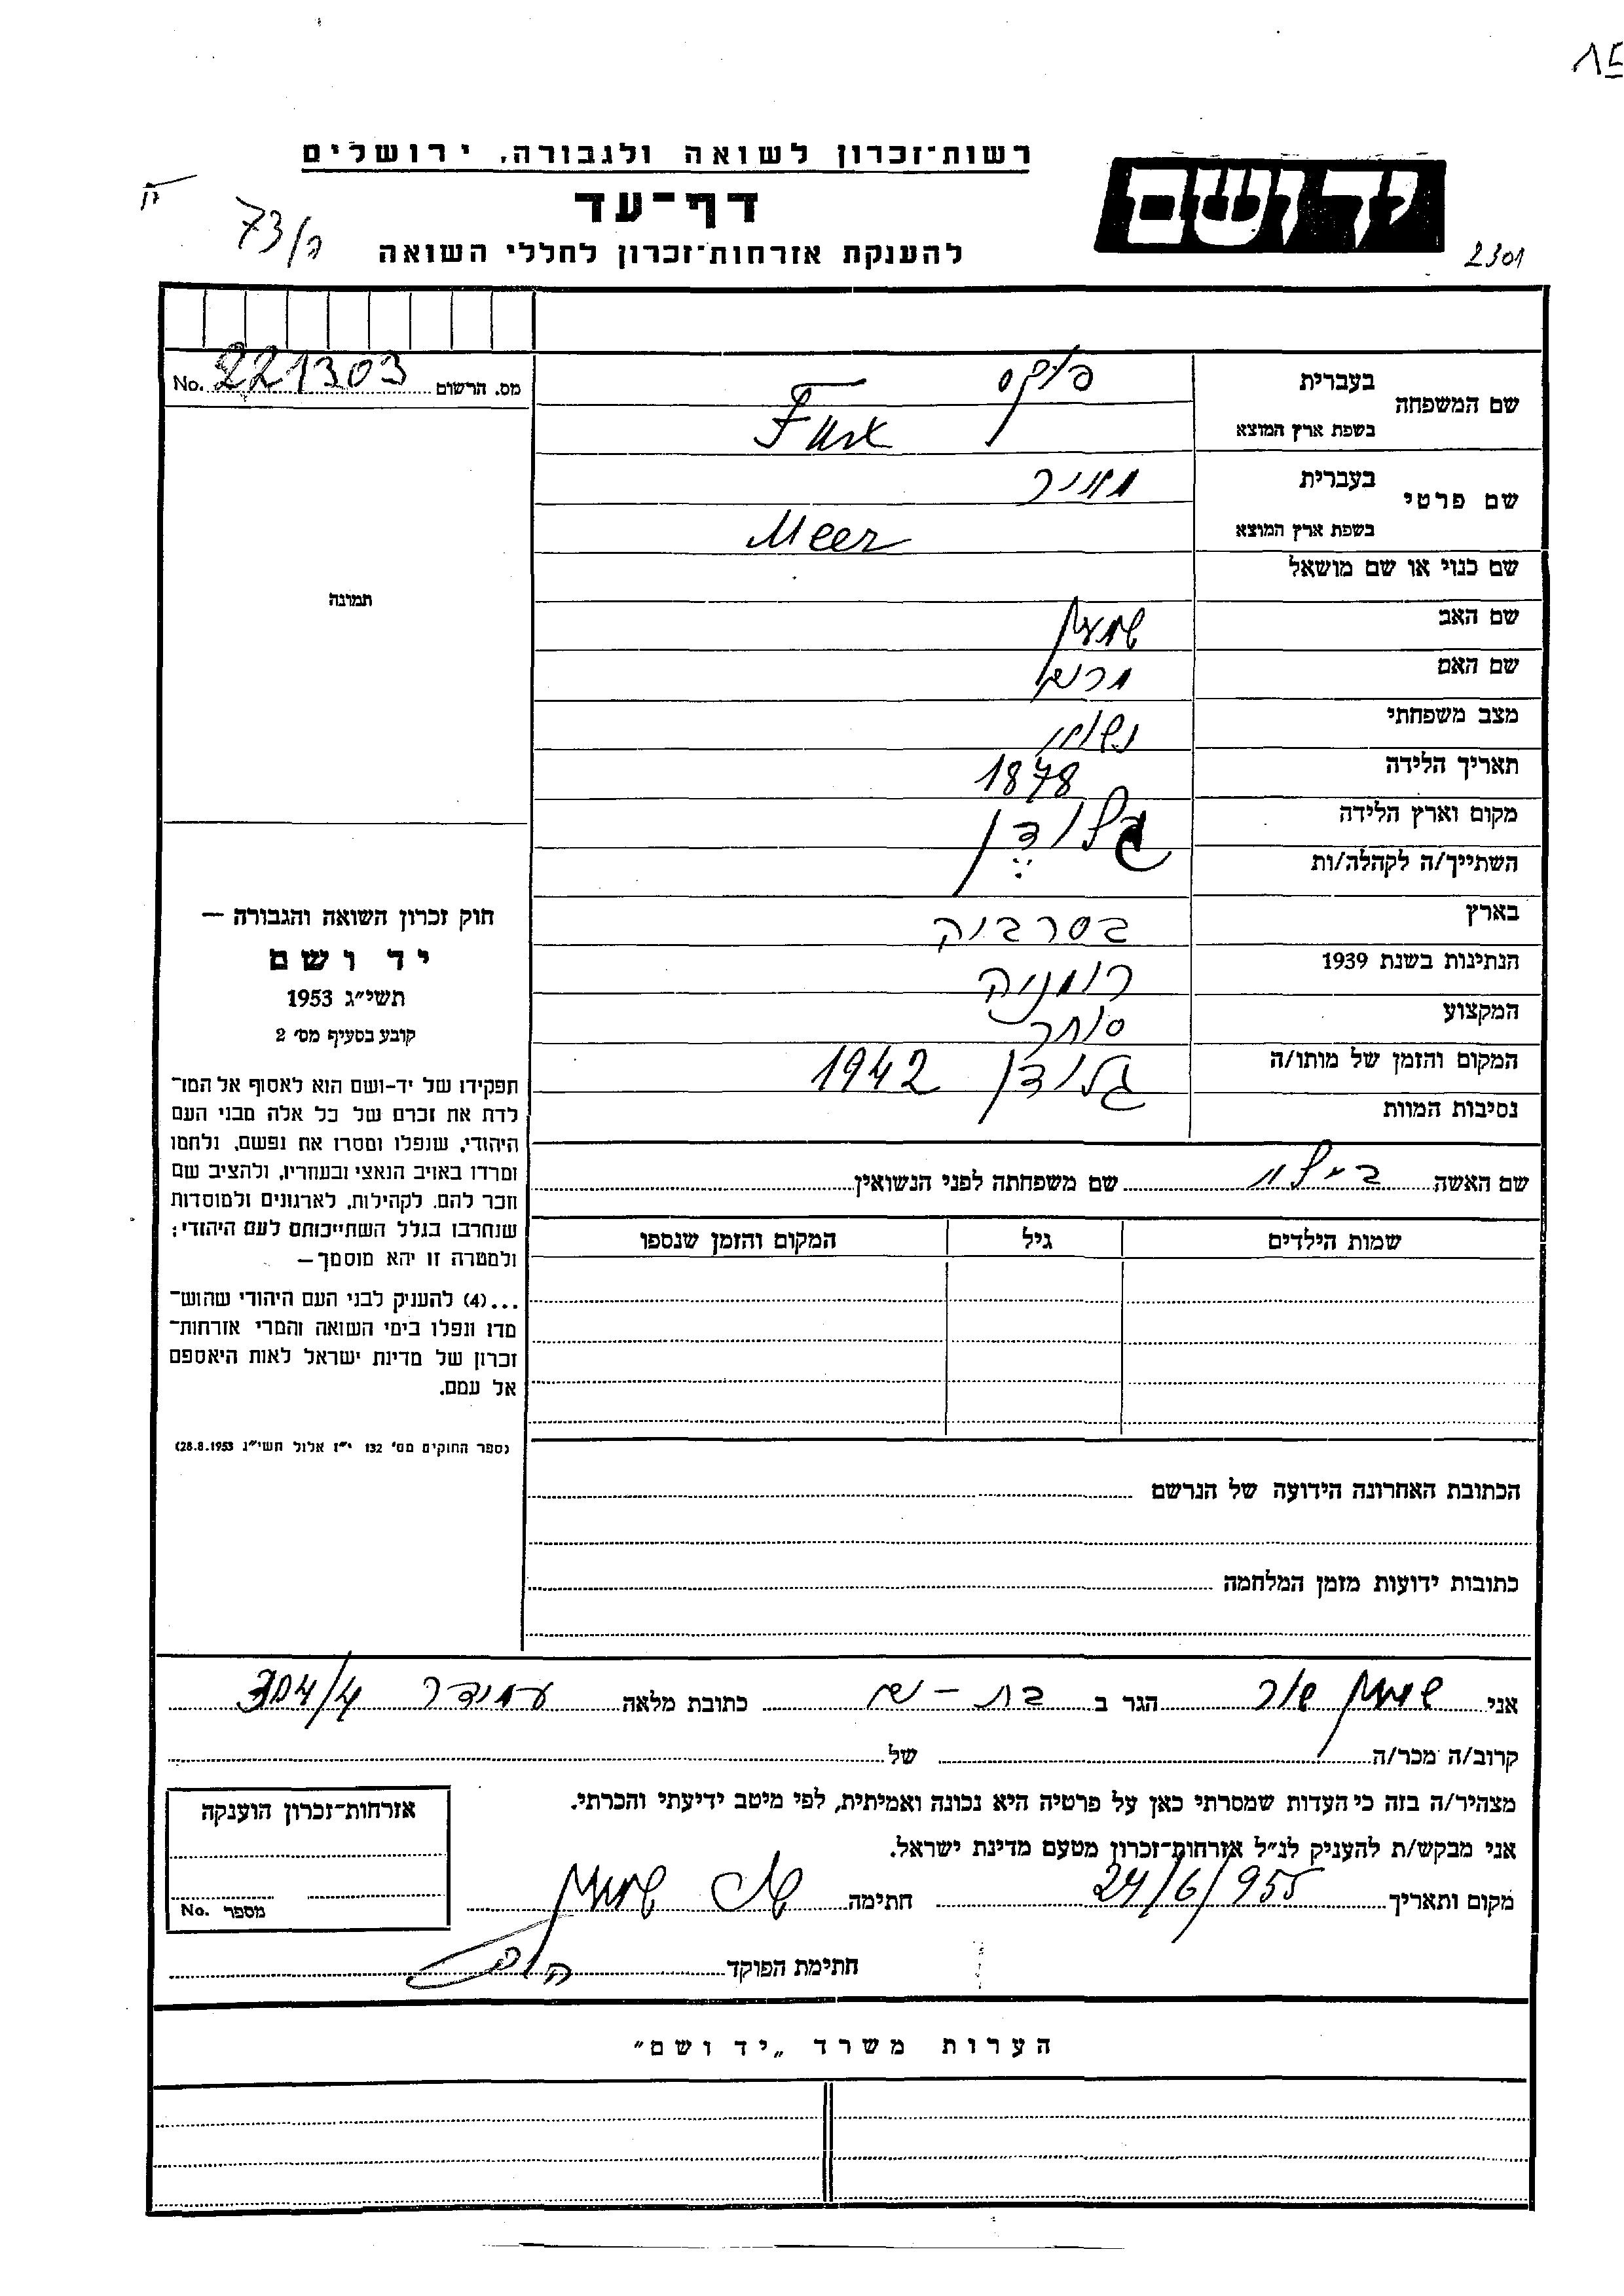 רשות־זכרון לשואה ולגבורה, ירושלים
יד ושם
דף־עד
73/ה
להענקת אזרחות־זכרון לחללי השואה
2301
מס. הרשום 221303 No.
שם המשפחה בעברית פוקס
בשפת ארץ המוצא Fux
שם פרטי בעברית מאיר
בשפת ארץ המוצא Meer
שם כנוי או שם מושאל
תמונה
שם האב שמעון
שם האם מרים
מצב משפחתי נשוי
תאריך הלידה 1878
מקום וארץ הלידה
השתייך/ה לקהלה/ות
בארץ בסרביה
הנתינות בשנת 1939 רומניה
המקצוע סוחר
המקום והזמן של מותו/ה 1942
נסיבות המוות
שם האשה שם משפחתה לפני הנשואין
שמות הילדים גיל המקום והזמן שנספו
חוק זכרון השואה והגבורה —
יד ושם
תשי״ג 1953
קובע בסעיף מס׳ 2
תפקידו של יד-ושם הוא לאסוף אל המו־
לדת את זכרם של כל אלה מבני העם
היהודי, שנפלו ומסרו את נפשם, נלחמו
ומרדו באויב הנאצי ובעוזריו, ולהציב שם
וזכר להם, לקהילות, לארגונים ולמוסדות
שנחרבו בגלל השתייכותם לעם היהודי;
ולמטרה זו יהא מוסמך—
...(4) להעניק לבני העם היהודי שהוש־
מדו ונפלו בימי השואה והמרי אזרחות־
זכרון של מדינת ישראל לאות היאספם
אל עמם.
(ספר החוקים מס׳ 132 י״ז אלול תשי״ג 28.8.1953)
הכתובת האחרונה הידועה של הנרשם
כתובות ידועות מזמן המלחמה
אני שמעון הגר ב בת-ים כתובת מלאה עמידר 304/4
קרוב/ה מכר/ה של
מצהיר/ה בזה כי העדות שמסרתי כאן על פרטיה היא נכונה ואמיתית, לפי מיטב ידיעתי והכרתי.
אני מבקש/ת להעניק לנ״ל אזרחות־זכרון מטעם מדינת ישראל.
מקום ותאריך 24/6/955 חתימה שמעון
חתימת הפוקד
אזרחות־זכרון הוענקה
מספר No.
הערות משרד „יד ושם״